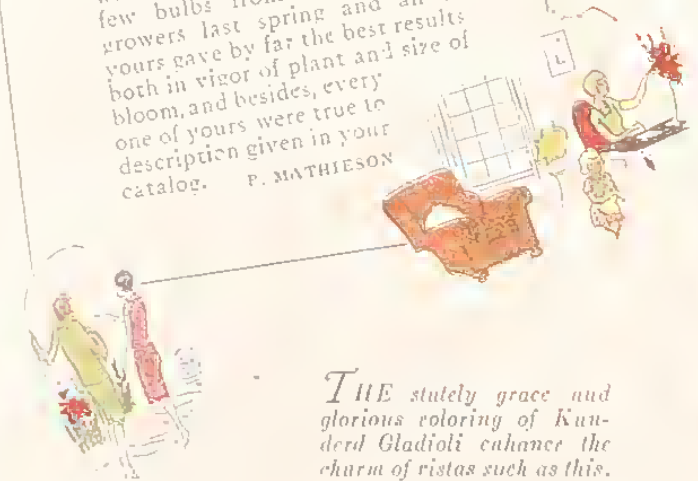 few bulbs from
growers last spring and an
yours gave by far the best results
both in vigor of plant and size of
bloom, and besides, every
one of yours were true to
description given in your
catalog. P. MATHIESON
L
THE stately grace and
glorious coloring of Kun-
derd Gladioli enhance the
charm of vistas such as this.